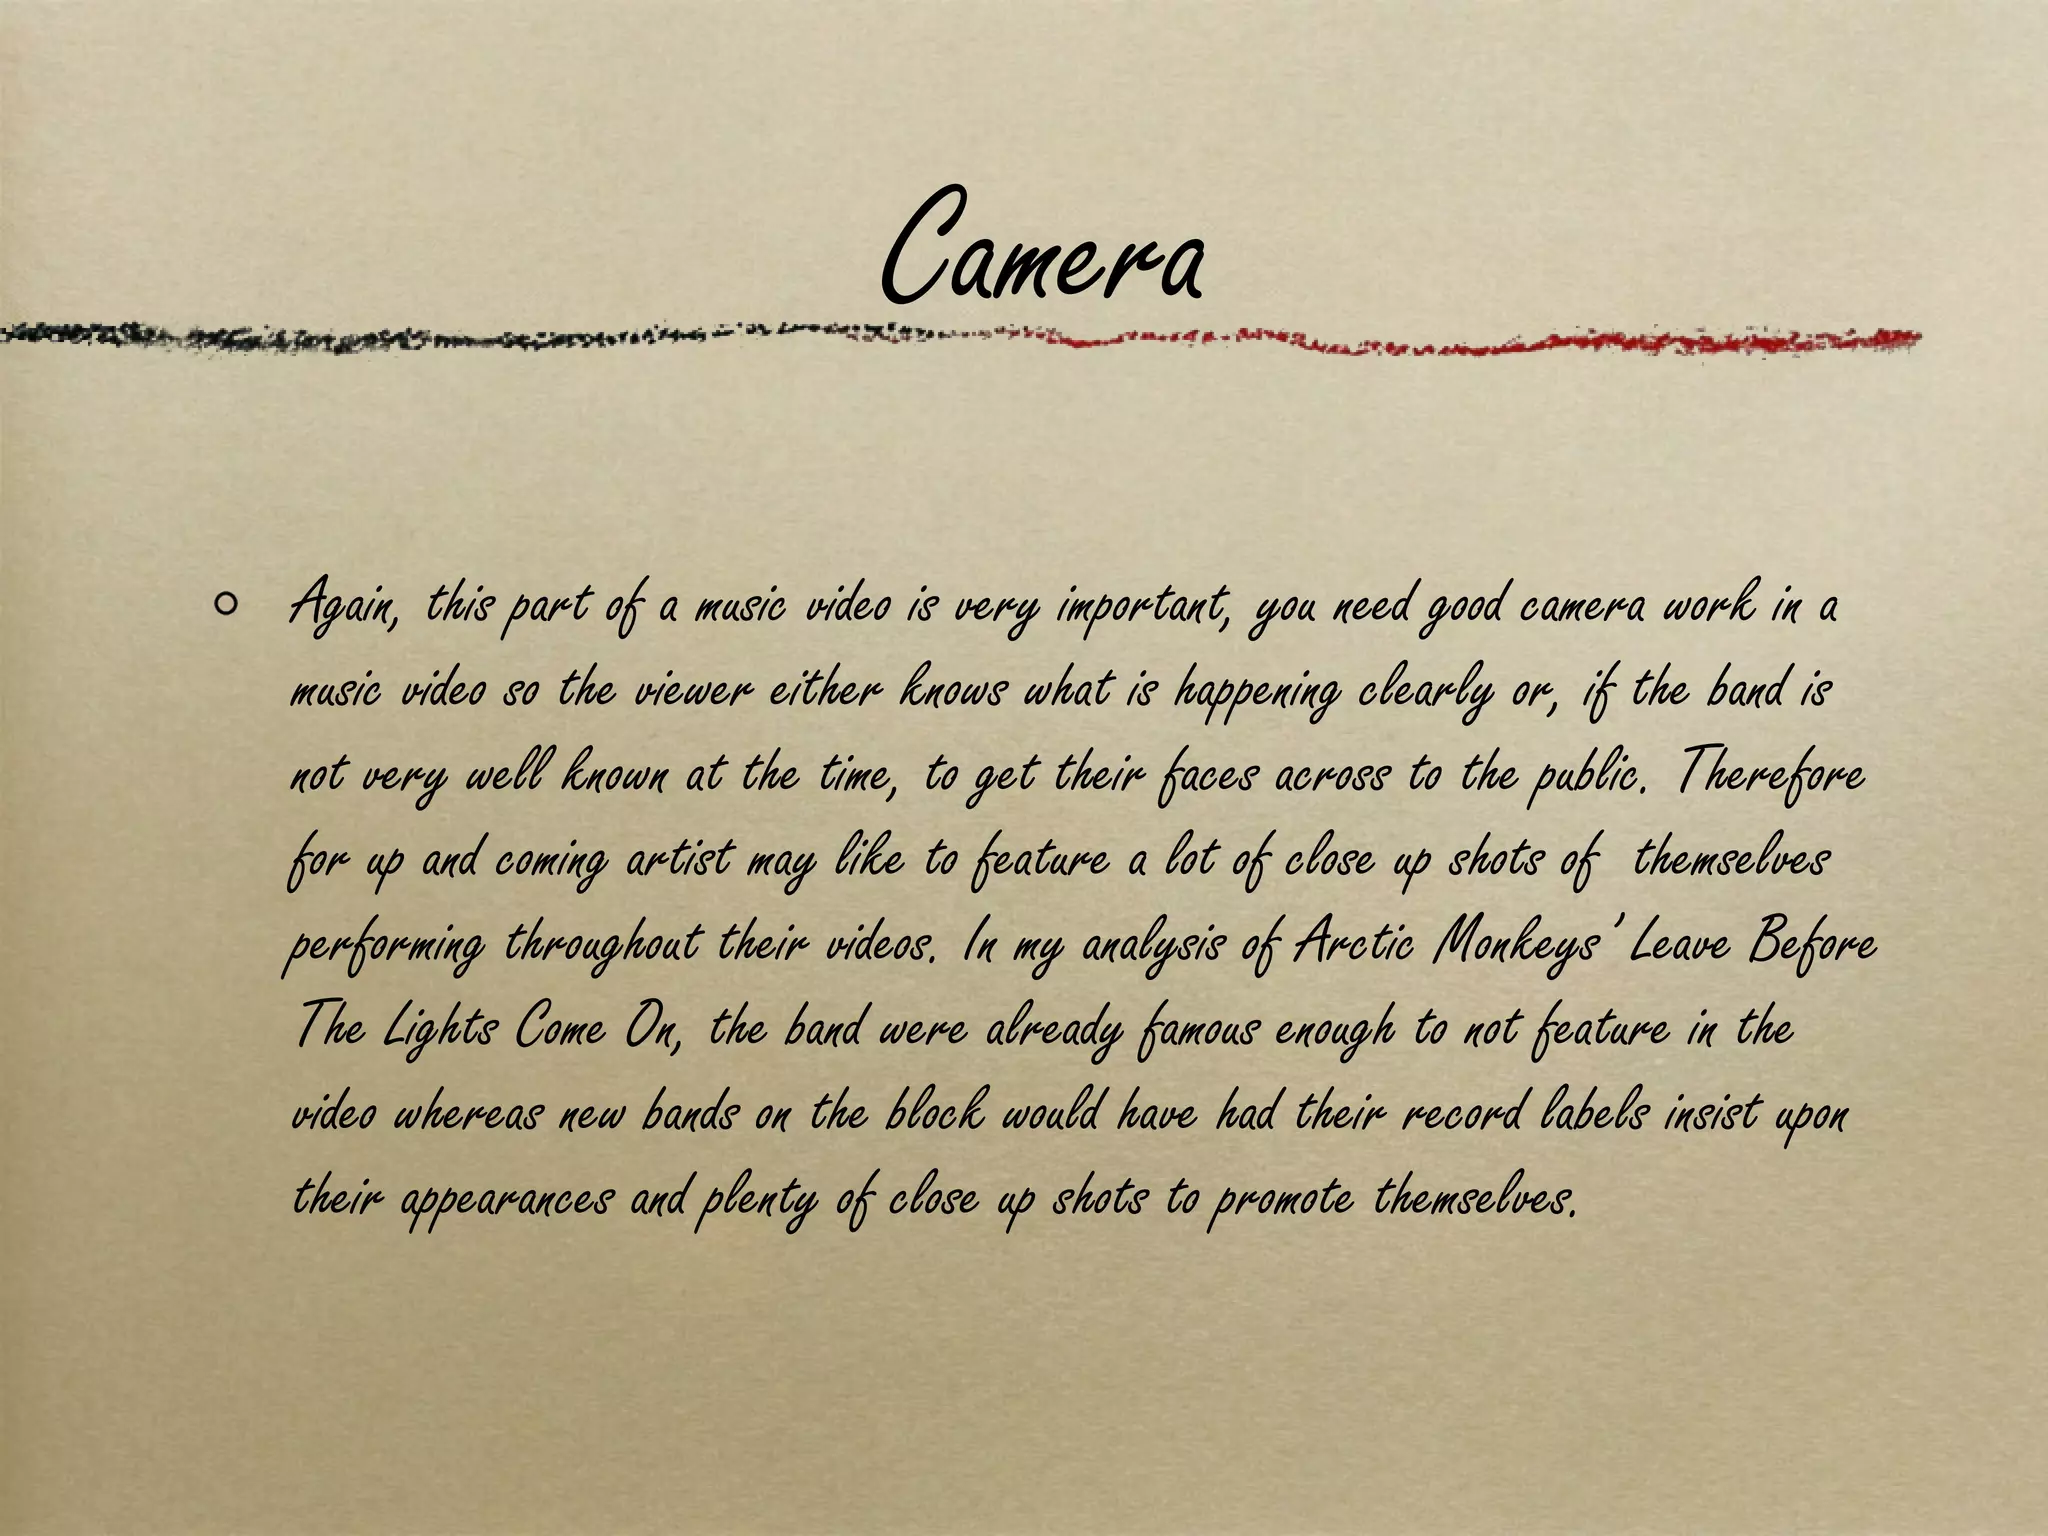 Camera
Again, this part of a music video is very important, you need good camera work in a
music video so the viewer either knows what is happening clearly or, if the band is
not very well known at the time, to get their faces across to the public. Therefore
for up and coming artist may like to feature a lot of close up shots of themselves
performing throughout their videos. In my analysis of Arctic Monkeys’ Leave Before
The Lights Come On, the band were already famous enough to not feature in the
video whereas new bands on the block would have had their record labels insist upon
their appearances and plenty of close up shots to promote themselves.